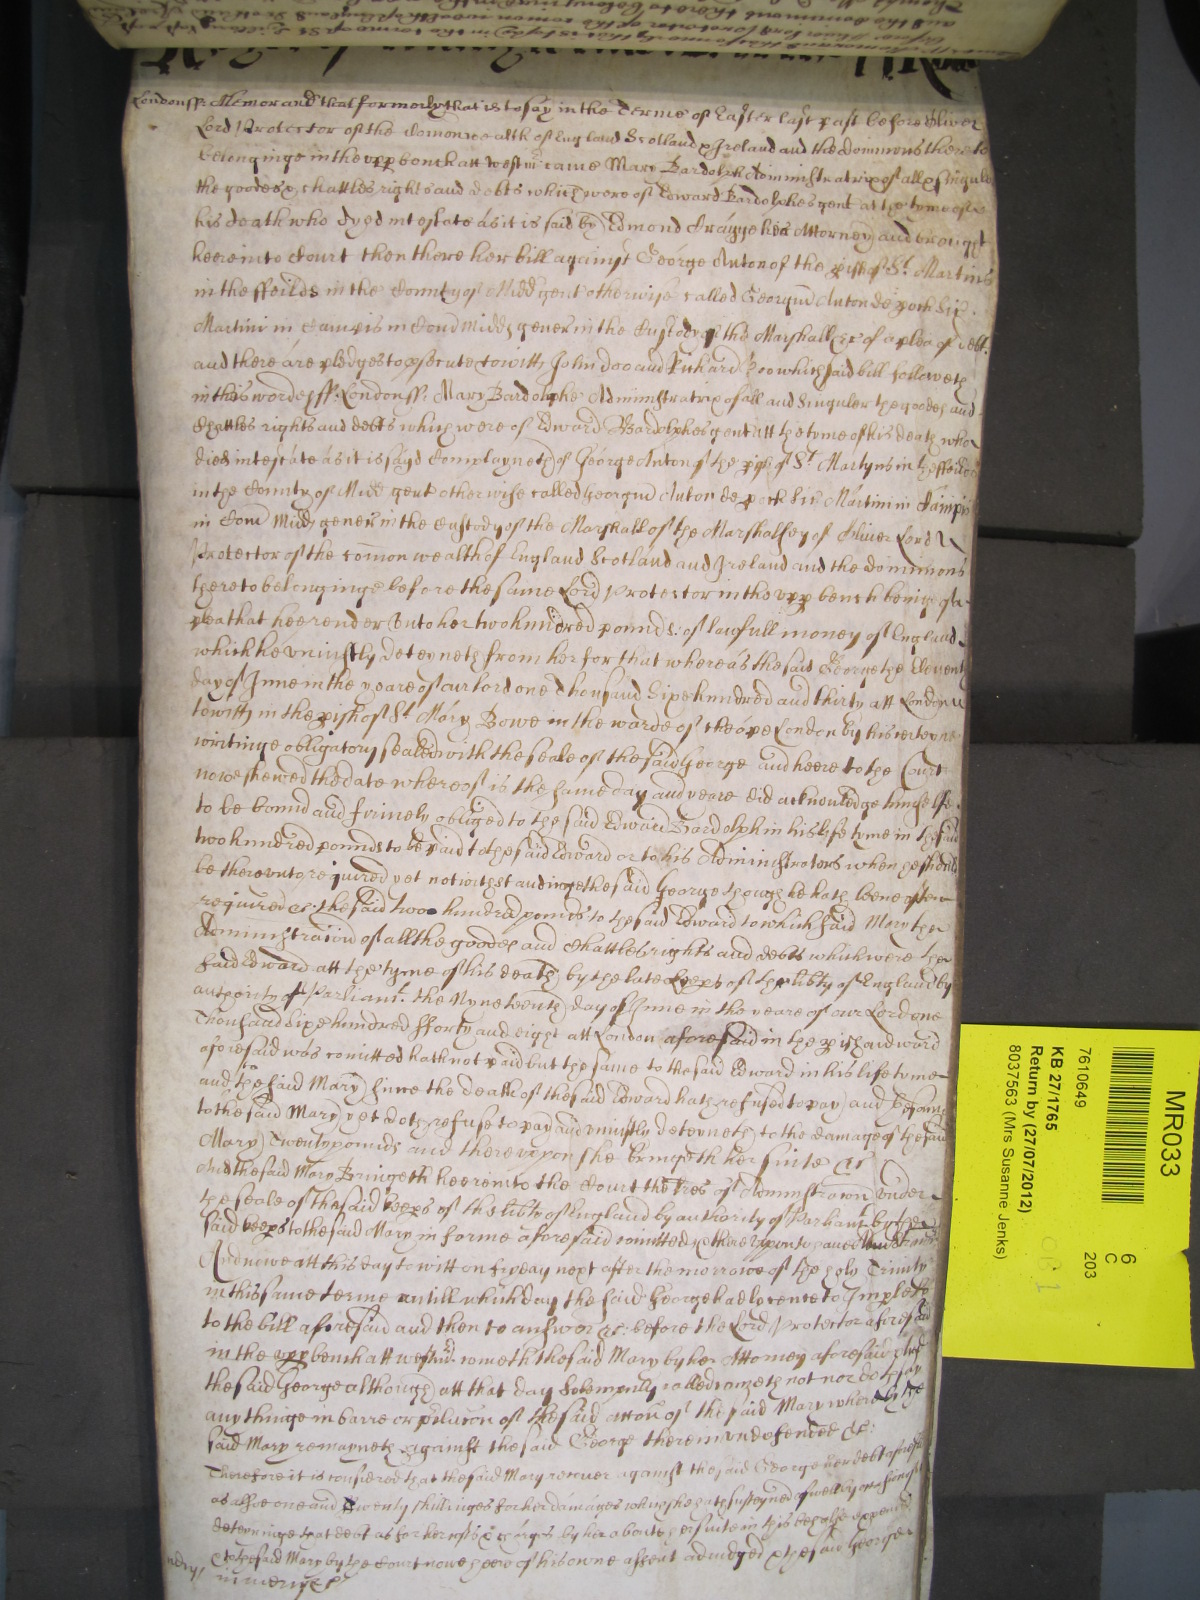 Londonss: Memorand that formerly that is to say in the Terme of Easter last past before Oliver
Lord Protector of the Comonwealth of England Scotland & Ireland and the Dominions thereto
belonginge in the upp bench att Westmr came Mary Bardolph Administratrix of all & singuler
the goodes & chattles rights and debts which were of Edward Bardolphe gent at the tyme of
his death who dyed intestate as it is said by Edmond his Attorney and brought
heere into Court then there her bill against George Anton of the pish of St. Martins
in the ffeilds in the County of Midd gent otherwise called Georgiu Anton de poch Sci
Martini in Campis in Com Midd gener in the Custody of the Marshall &c of a plea of debt.
and there are pledges to psecute towitt John Doo and Richard Roo which said bill followeth
in this wordes ss: Londonss: Mary Bardolphe Administratrix of all and singuler the goodes and
Chattles rights and debts which were of Edward Bardolphe gent att the tyme of his death who
died intestate as it is sayd Complayneth of George Anton of the pish of St Martyns in the ffeildes
in the County of Midd gent otherwise called Georgiu Anton de poch Sci Martini in Campis
in Com Midd gener in the Custody of the Marshall of the Marshalsey of Oliver Lord
Protector of the comon wealth of England Scotland and Ireland and the dominions
thereto belonginge before the same Lord Protector in the upp bench beinge of a
plea that hee render unto her two hundred pounds: of lawfull money of England
which he uniustly deteyneth from her for that whereas the said George the Eleventh
day of June in the yeare of our Lord one Thousand Sixe hundred and thirty att London
towitt in the pish of St. Mary Bowe in the warde of Cheape London by his certeyne
writinge obligatory sealed with the seale of the said George and heere to the Court
nowe shewed the date whereof is the same day and yeare did acknowledge himselfe
to be bound and firmely obliged to the said Edward Bardolph in his life tyme in the said
two hundred pounds to be paid to the said Edward or to his Administrators when he should
be thereunto required yet notwithstandinge the said George though he hath beene often
required &c. the said two hundred pounds to the said Edward to which said Mary the
Administracion of all the goodes and Chattles rights and debts which were the
said Edward att the tyme of his death by the late keeps of the libty of England by
authority of Parliamt. the Nyneteenth day of June in the yeare of our Lord one
Thousand Sixe hundred fforty and eight att London aforesaid in the pish and ward
aforesaid was comitted hath not paid but the same to the said Edward in his life tyme
and the said Mary since the death of the said Edward hath refused to pay and the same
to the said Mary yet doth refuse to pay and uniustly deteyneth to the damage of the said
Mary Twenty pounds and thereupon she bringeth her suite &c
And the said Mary Bringeth heere into the Court the lres of Administracon under
the seale of the said keeps of the libty of England by authority of Parliamt by the
said keeps to the said Mary in forme aforesaid comitted
And nowe att this day to witt on fryday next after the morrowe of the holy Trinity
in this same terme untill which day the said George had licence to Imple
to the bill aforesaid and then to answer &c: before the Lord Protector aforesaid
in the upp bench att Westmr. cometh the said Mary by her Attorney aforesaid And
the said George although att that day Solempnly called cometh not nor doth say
any thinge in barre or pclucon of the said accon of the said Mary whereby the
said Mary remayneth against the said George therein undefended &c:
Therefore it is considered that the said Mary recover against the said George her debt aforesaid
as alsoe one and Twenty shillinges for her damages which she hath susteyned aswell by occasion of
deteyninge that debt as for her costs & charges by her about her suite in this behalfe expended
to the said Mary by the Court nowe heere of his owne assent adiudged & the said George
in mercy &c
MR033
7610649
KB 27/1765
Return by (27/07/2012)
8037563 (Mrs Susanne Jenks)
6
C
203